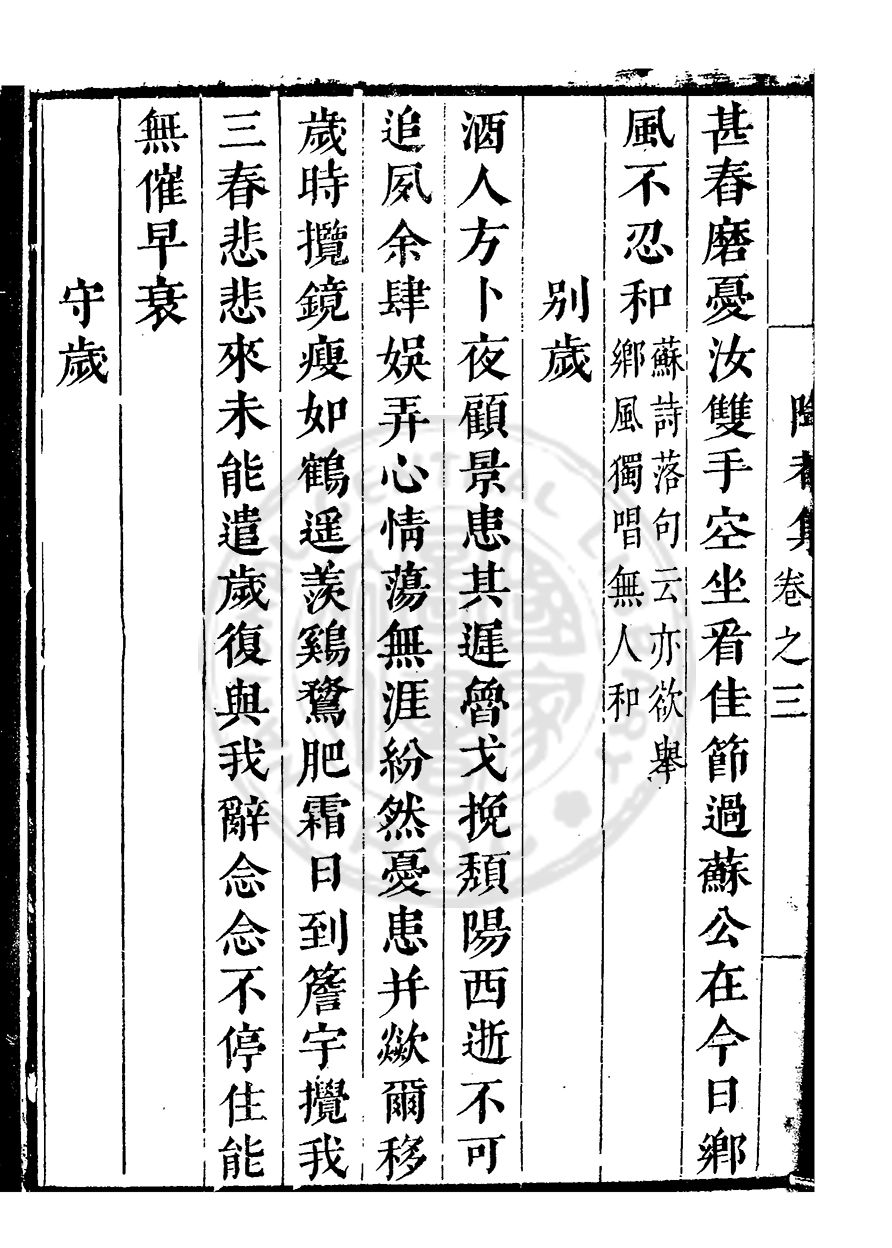 集卷之三
甚舂磨憂汝雙手空坐看佳節過蘇公在今日鄉
風不忍和
蘇詩落句云亦欲舉
鄉風獨唱無人和
別歲
酒人方卜夜顧景患其遲魯戈挽頹陽西逝不可
追夙余肆娛弄心情蕩無涯紛然憂患并歘爾移
歲時攬鏡瘦如鶴遥羨鷄鶩肥霜日到簷宇攪我
三春悲悲來未能遣歲復與我辭念念不停住能
無催早衰
守歲